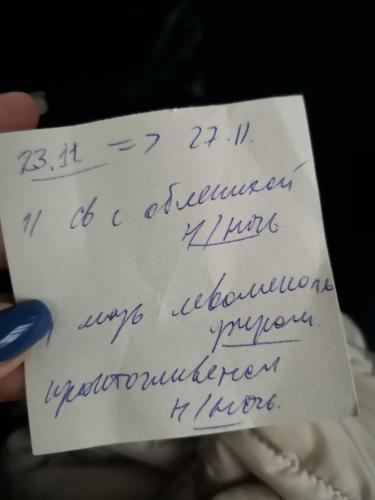 23.11 => 27.11.
1/ св с облепихой
н/ночь
мазь левомеколь
утром.
н/ночь.